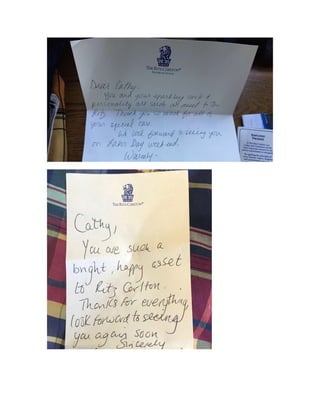 THE RITZ-CARLTON
Dear Cathy.
You and your sparkling smile &
personality are such an asset to The
Ritz. Thank you so much for all of
your special care.
We look forward to seeing you
on Labor Day weekend.
Warmly -
THE RITZ-CARLTON
Cathy,
You are such a
bright, happy asset
to Ritz Carlton.
Thanks for everything,
look forward to seeing
you again soon
Sincerely